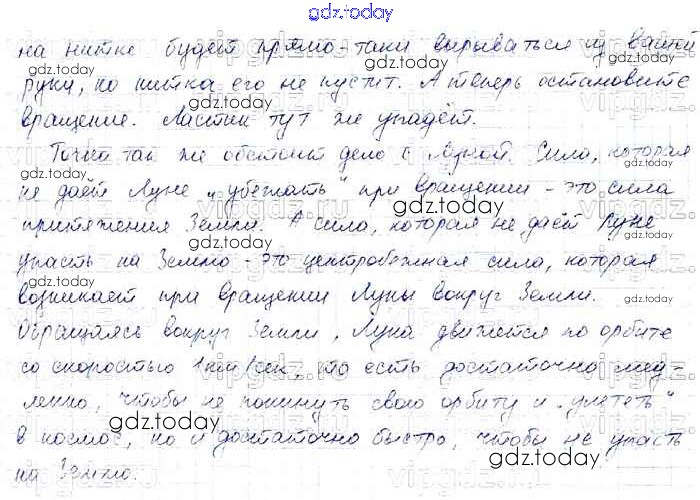 gdz.today
на нитке будет прямо-таки вырываться из вашей
руки, но нитка его не пустит. А теперь остановите
вращение. Ластик тут же упадёт.
Точно так же обстоит дело с Луной. Сила, которая
не даёт Луне „убежать“ при вращении - это сила
притяжения Земли. А сила, которая не даёт Луне
упасть на Землю - это центробежная сила, которая
возникает при вращении Луны вокруг Земли.
Обращаясь вокруг Земли, Луна движется по орбите
со скоростью 1 км/сек, то есть достаточно мед-
ленно, чтобы не покинуть свою орбиту и „улететь“
в космос, но и достаточно быстро, чтобы не упасть
на Землю.